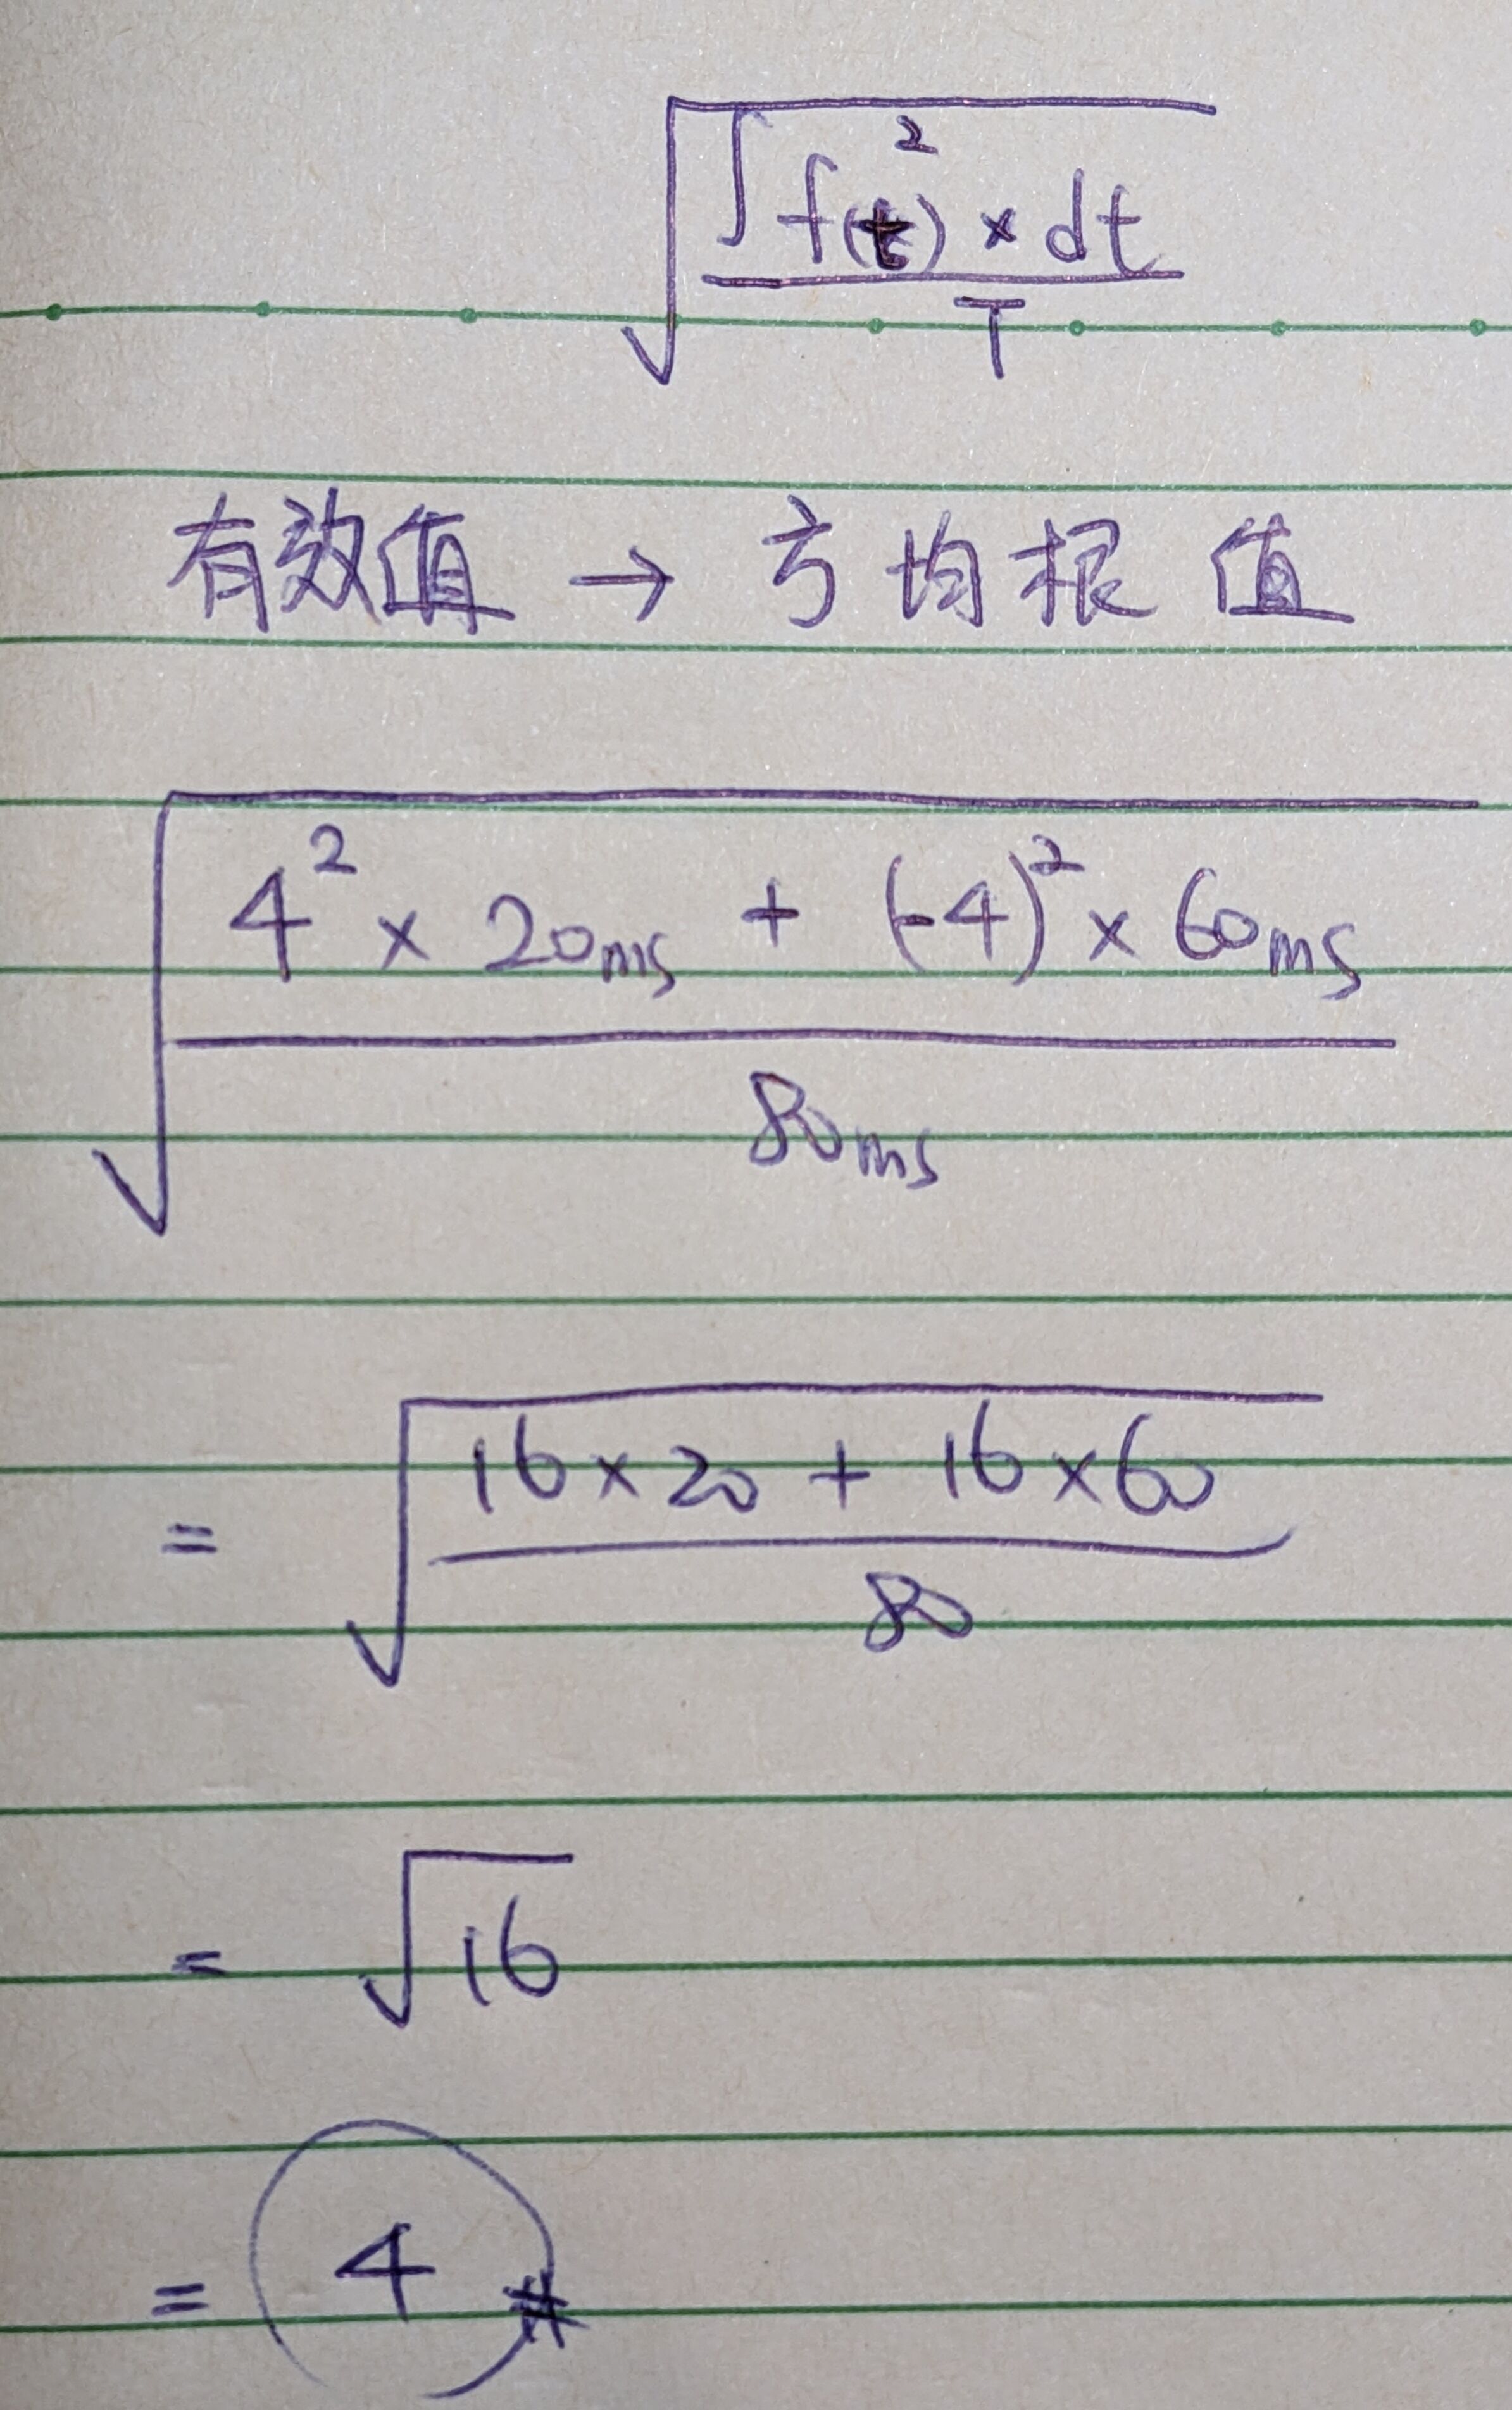 √(∫f(t)² × dt / T)
有效值 → 方均根值
√((4² × 20ms + (-4)² × 60ms) / 80ms)
= √((16×20 + 16×60) / 80)
= √16
= 4 #